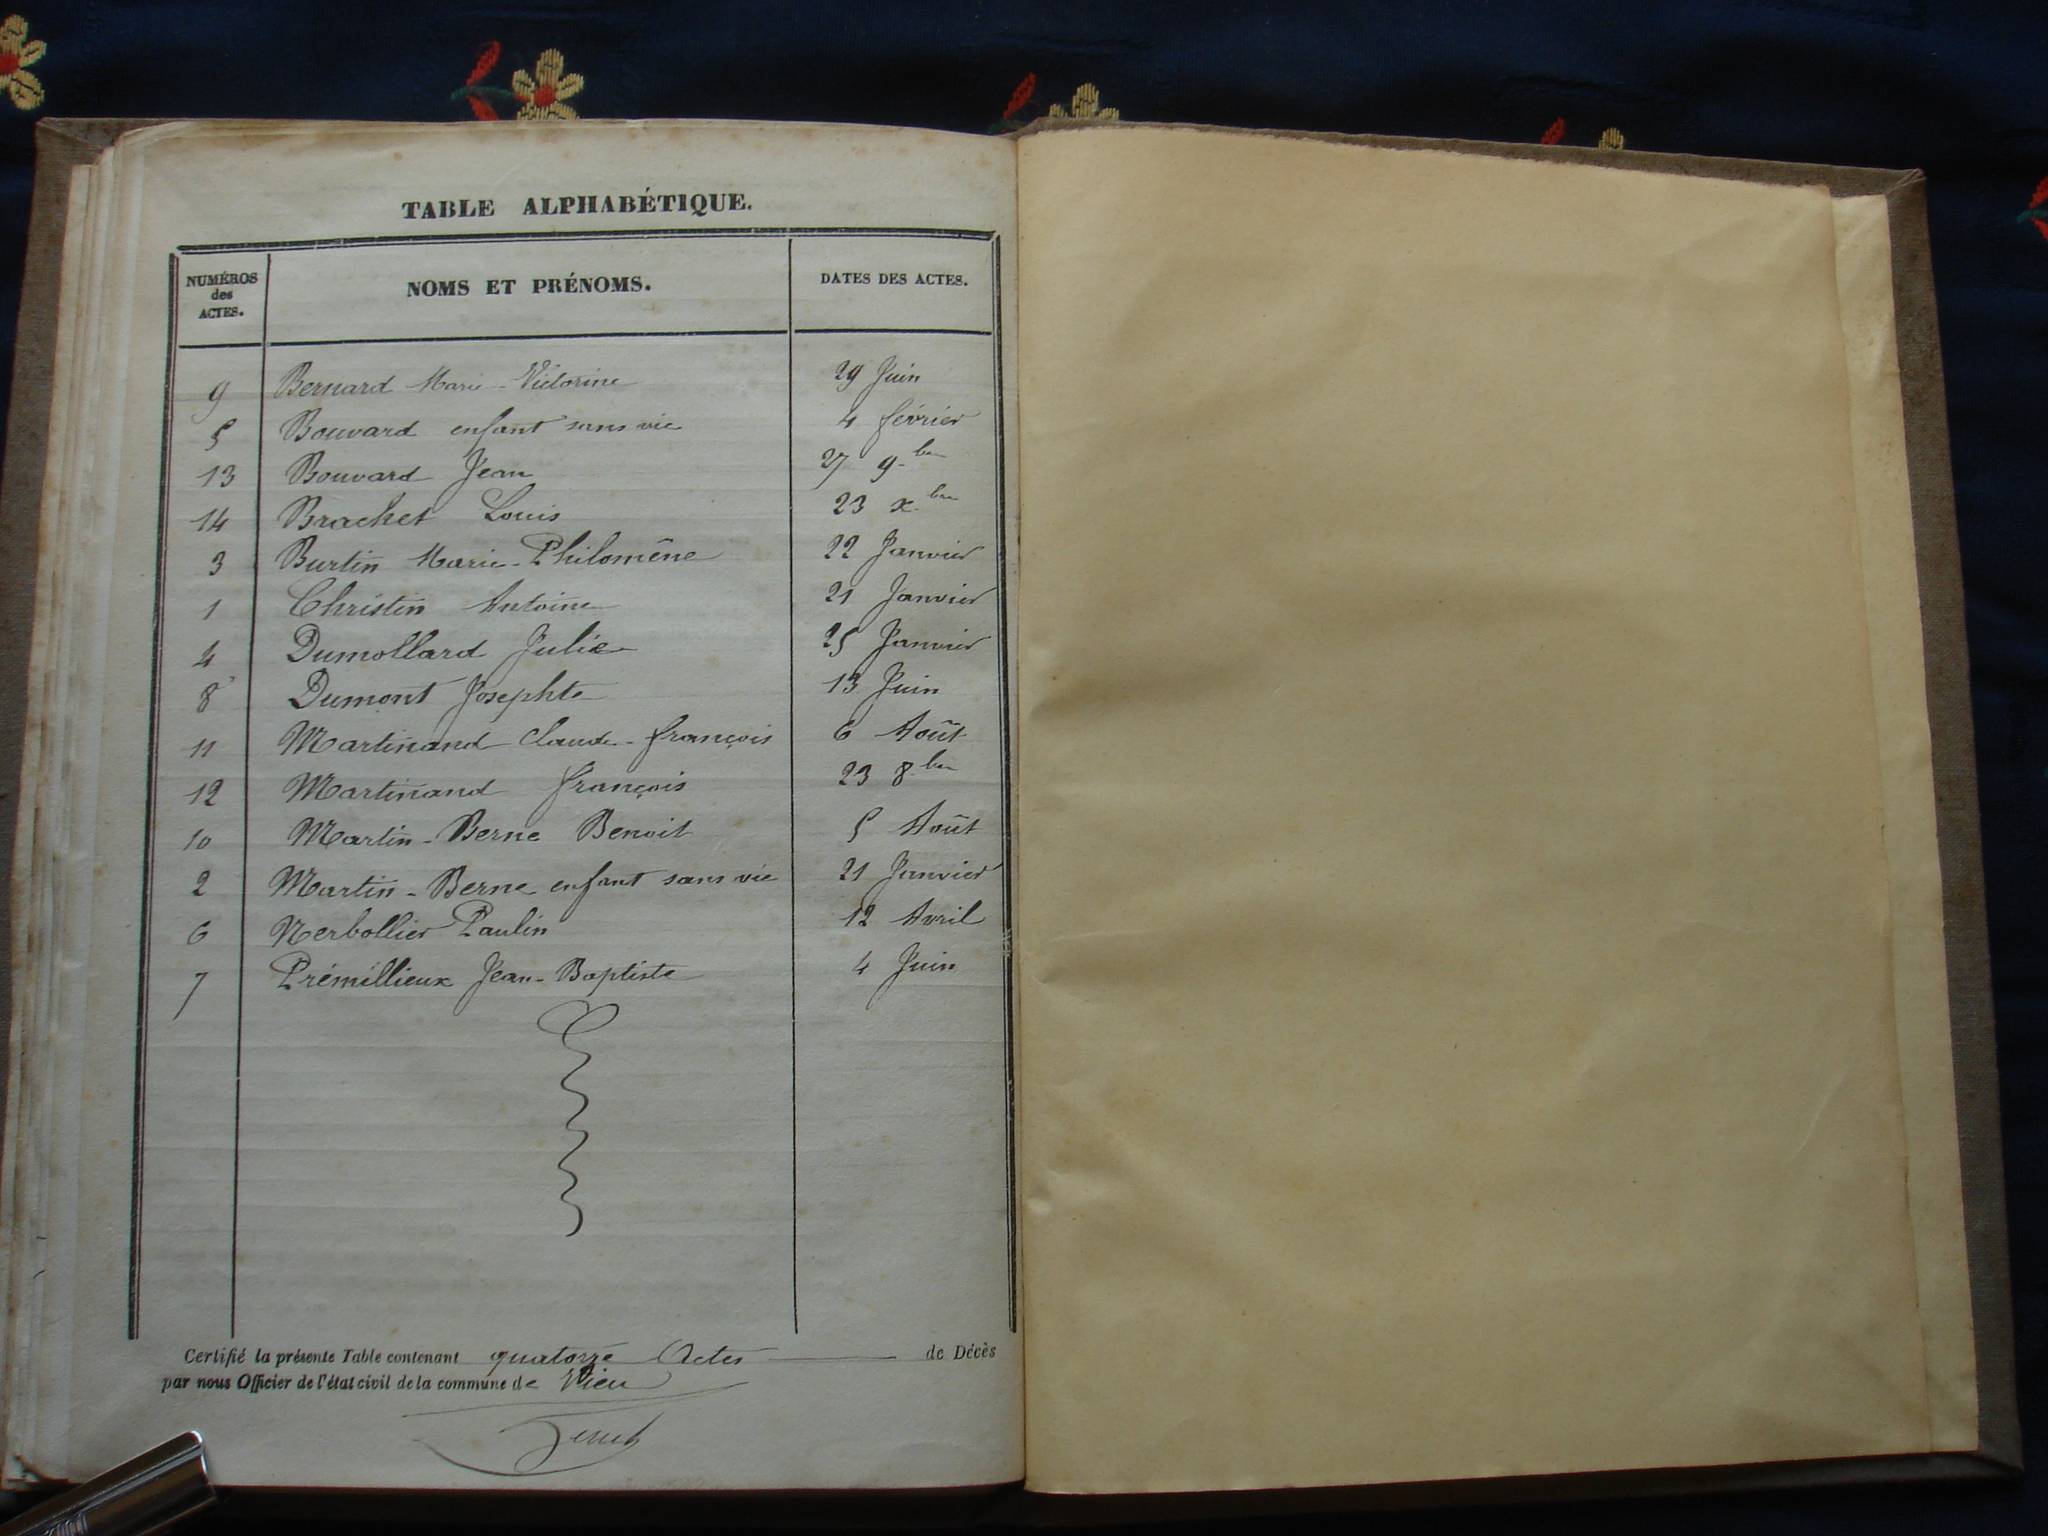 TABLE ALPHABÉTIQUE.
NUMÉROS des ACTES. NOMS ET PRÉNOMS. DATES DES ACTES.
9 Bernard Marie-Victorine 29 Juin
5 Bouvard enfant sans vie 4 février
13 Bouvard Jean 27 9-bre
14 Brachet Louis 23 x-bre
3 Burtin Marie-Philomène 22 Janvier
1 Christin Antoine 21 Janvier
4 Dumollard Julie 25 Janvier
8 Dumont Josephte 13 Juin
11 Martinand Claude-françois 6 Août
12 Martinand françois 23 8-bre
10 Martin-Berne Benoit 5 Août
2 Martin-Berne enfant sans vie 21 Janvier
6 Nerbollier Paulin 12 Avril
7 Prémillieux Jean-Baptiste 4 Juin
Certifié la présente Table contenant quatorze Actes de Décès
par nous Officier de l'état civil de la commune de Vieu